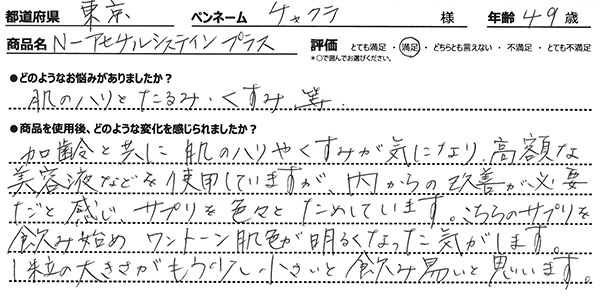 都道府県 東京 ペンネーム チャクラ 様 年齢 49 歳
商品名 N-アセチルシステイン プラス 評価 とても満足・満足・どちらとも言えない・不満足・とても不満足
*○で囲んでお選びください。
●どのようなお悩みがありましたか？
肌のハリとたるみ・くすみ 等.
●商品を使用後、どのような変化を感じられましたか？
加齢と共に 肌のハリやくすみが気になり、高額な
美容液などを使用していますが、内からの改善が必要
だと感じ、サプリを色々とためしています。こちらのサプリを
飲み始め ワントーン肌色が明るくなった気がします。
1粒の大きさがもう少し小さいと飲み易いと思います。